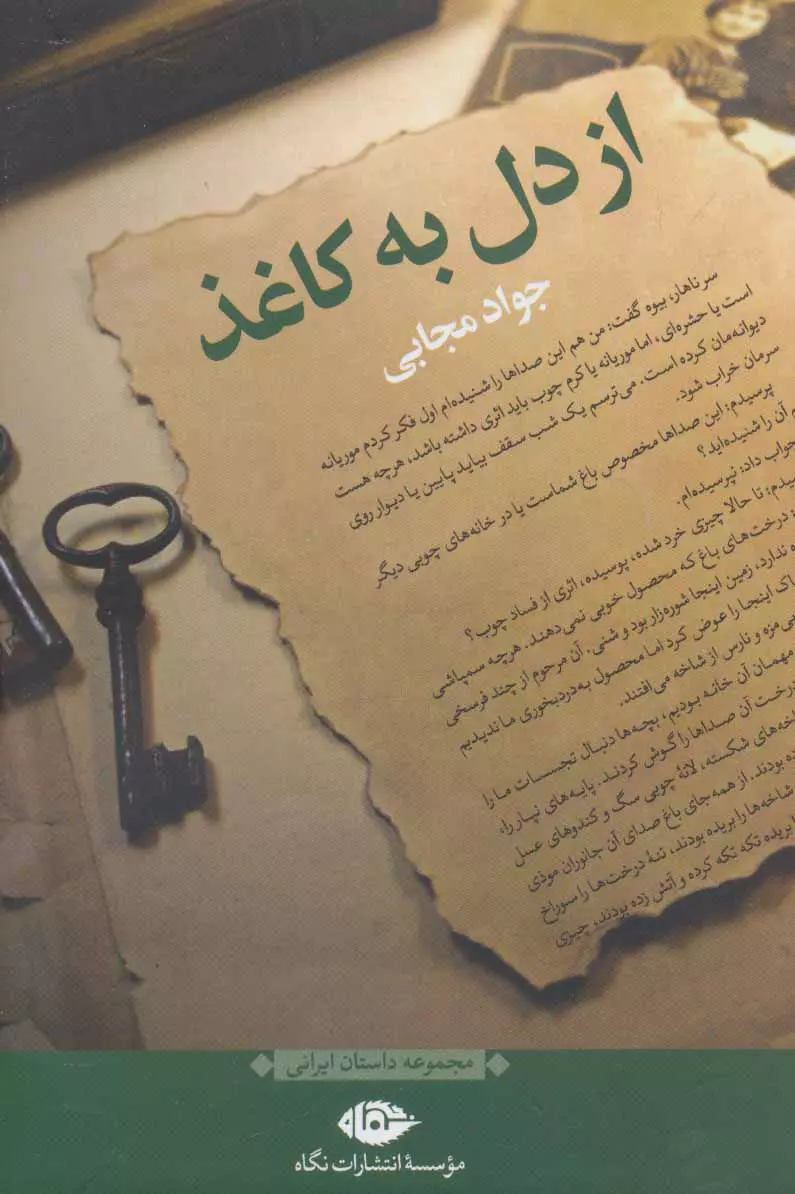 از دل به کاغذ
جواد مجابی
سر ناهار، بیوه گفت: من هم این صداها را شنیده‌ام اول فکر کردم موریانه
است یا حشره‌ای، اما موریانه یا کرم چوب باید اثری داشته باشد، هرچه هست
دیوانه‌مان کرده است. می‌ترسم یک شب سقف بیاید پایین یا دیوار روی
سرمان خراب شود.
پرسیدم: این صداها مخصوص باغ شماست یا در خانه‌های چوبی دیگر
آن را شنیده‌اید؟
جواب داد: نپرسیده‌ام.
تا حالا چیزی خرد شده، پوسیده، اثری از فساد چوب؟
درخت‌های باغ که محصول خوبی نمی‌دهند. هرچه سمپاشی
ندارد، زمین اینجا شوره‌زار بود و شنی. آن مرحوم از چند فرسخی
اینجا را عوض کرد اما محصول به‌دردبخوری ما ندیدیم
مزه و نارس از شاخه می‌افتند.
مهمان آن خانه بودیم، بچه‌ها دنبال تجسسات ما را
درخت آن صداها را گوش کردند. پایه‌های نپار را،
شکسته، لانهٔ چوبی سگ و کندوهای عسل
بودند. از همه جای باغ صدای آن جانوران موذی
شاخه‌ها را بریده بودند، تنهٔ درخت‌ها را سوراخ
بریده تکه تکه کرده و آتش زده بودند، چیزی
مجموعه داستان ایرانی
نگاه
مؤسسهٔ انتشارات نگاه